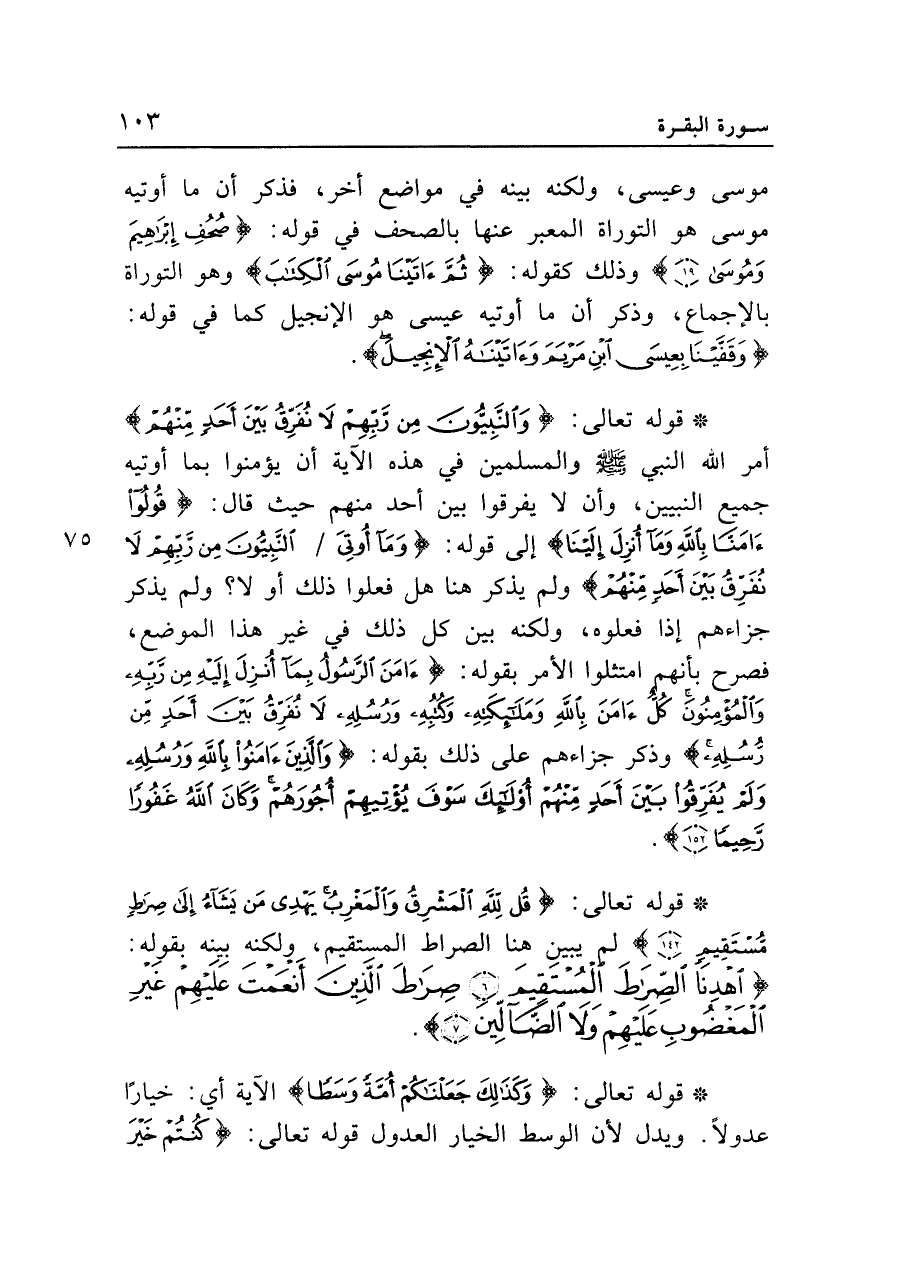 سورة البقرة ١٠٣
موسى وعيسى، ولكنه بينه في مواضع أخر، فذكر أن ما أوتيه
موسى هو التوراة المعبر عنها بالصحف في قوله: ﴿صُحُفِ إِبْرَاهِيمَ
وَمُوسَىٰ ١٩﴾ وذلك كقوله: ﴿ثُمَّ ءَاتَيْنَا مُوسَى ٱلْكِتَٰبَ﴾ وهو التوراة
بالإجماع، وذكر أن ما أوتيه عيسى هو الإنجيل كما في قوله:
﴿وَقَفَّيْنَا بِعِيسَى ٱبْنِ مَرْيَمَ وَءَاتَيْنَٰهُ ٱلْإِنجِيلَۖ﴾.
* قوله تعالى: ﴿وَٱلنَّبِيُّونَ مِن رَّبِّهِمْ لَا نُفَرِّقُ بَيْنَ أَحَدٍ مِّنْهُمْ﴾
أمر الله النبي ﷺ والمسلمين في هذه الآية أن يؤمنوا بما أوتيه
جميع النبيين، وأن لا يفرقوا بين أحد منهم حيث قال: ﴿قُولُوٓا۟
ءَامَنَّا بِٱللَّهِ وَمَآ أُنزِلَ إِلَيْنَا﴾ إلى قوله: ﴿وَمَآ أُوتِىَ / ٱلنَّبِيُّونَ مِن رَّبِّهِمْ لَا ٧٥
نُفَرِّقُ بَيْنَ أَحَدٍ مِّنْهُمْ﴾ ولم يذكر هنا هل فعلوا ذلك أو لا؟ ولم يذكر
جزاءهم إذا فعلوه، ولكنه بين كل ذلك في غير هذا الموضع،
فصرح بأنهم امتثلوا الأمر بقوله: ﴿ءَامَنَ ٱلرَّسُولُ بِمَآ أُنزِلَ إِلَيْهِ مِن رَّبِّهِۦ
وَٱلْمُؤْمِنُونَۚ كُلٌّ ءَامَنَ بِٱللَّهِ وَمَلَٰٓئِكَتِهِۦ وَكُتُبِهِۦ وَرُسُلِهِۦ لَا نُفَرِّقُ بَيْنَ أَحَدٍ مِّن
رُّسُلِهِۦۚ﴾ وذكر جزاءهم على ذلك بقوله: ﴿وَٱلَّذِينَ ءَامَنُوا۟ بِٱللَّهِ وَرُسُلِهِۦ
وَلَمْ يُفَرِّقُوا۟ بَيْنَ أَحَدٍ مِّنْهُمْ أُو۟لَٰٓئِكَ سَوْفَ يُؤْتِيهِمْ أُجُورَهُمْۚ وَكَانَ ٱللَّهُ غَفُورًا
رَّحِيمًا ١٥٢﴾.
* قوله تعالى: ﴿قُل لِّلَّهِ ٱلْمَشْرِقُ وَٱلْمَغْرِبُۚ يَهْدِى مَن يَشَآءُ إِلَىٰ صِرَٰطٍ
مُّسْتَقِيمٍ ١٤٢﴾ لم يبين هنا الصراط المستقيم، ولكنه بينه بقوله:
﴿ٱهْدِنَا ٱلصِّرَٰطَ ٱلْمُسْتَقِيمَ ٦ صِرَٰطَ ٱلَّذِينَ أَنْعَمْتَ عَلَيْهِمْ غَيْرِ
ٱلْمَغْضُوبِ عَلَيْهِمْ وَلَا ٱلضَّآلِّينَ ٧﴾.
* قوله تعالى: ﴿وَكَذَٰلِكَ جَعَلْنَٰكُمْ أُمَّةً وَسَطًا﴾ الآية أي: خيارًا
عدولاً. ويدل لأن الوسط الخيار العدول قوله تعالى: ﴿كُنتُمْ خَيْرَ